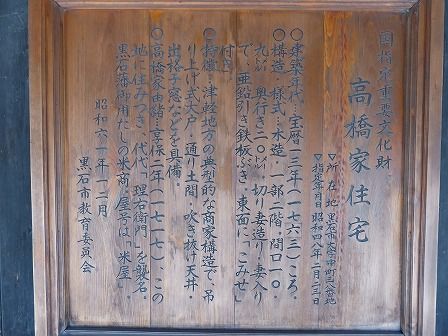 国指定重要文化財
高橋家住宅
▽所在地 黒石市大字中町三八番地
▽指定年月日 昭和四八年二月二三日
〇建築年代‥宝暦一三年(一七六三)ころ。
〇構造・様式‥木造・一部二階・間口一〇・
九㍍・奥行き二〇㍍・切り妻造り・妻入り
で、亜鉛引き鉄板ぶき、東面に「こみせ」
付き。
〇特徴‥津軽地方の典型的な商家構造で、吊
り上げ式大戸・通り土間・吹き抜け天井・
出格子窓などを具備。
〇高橋家由緒‥享保二年(一七一七)、この
地に住みつき、代代「理右衛門」を襲名。
黒石藩御用だしの米商。屋号は「米屋」。
昭和六一年一二月
黒石市教育委員会